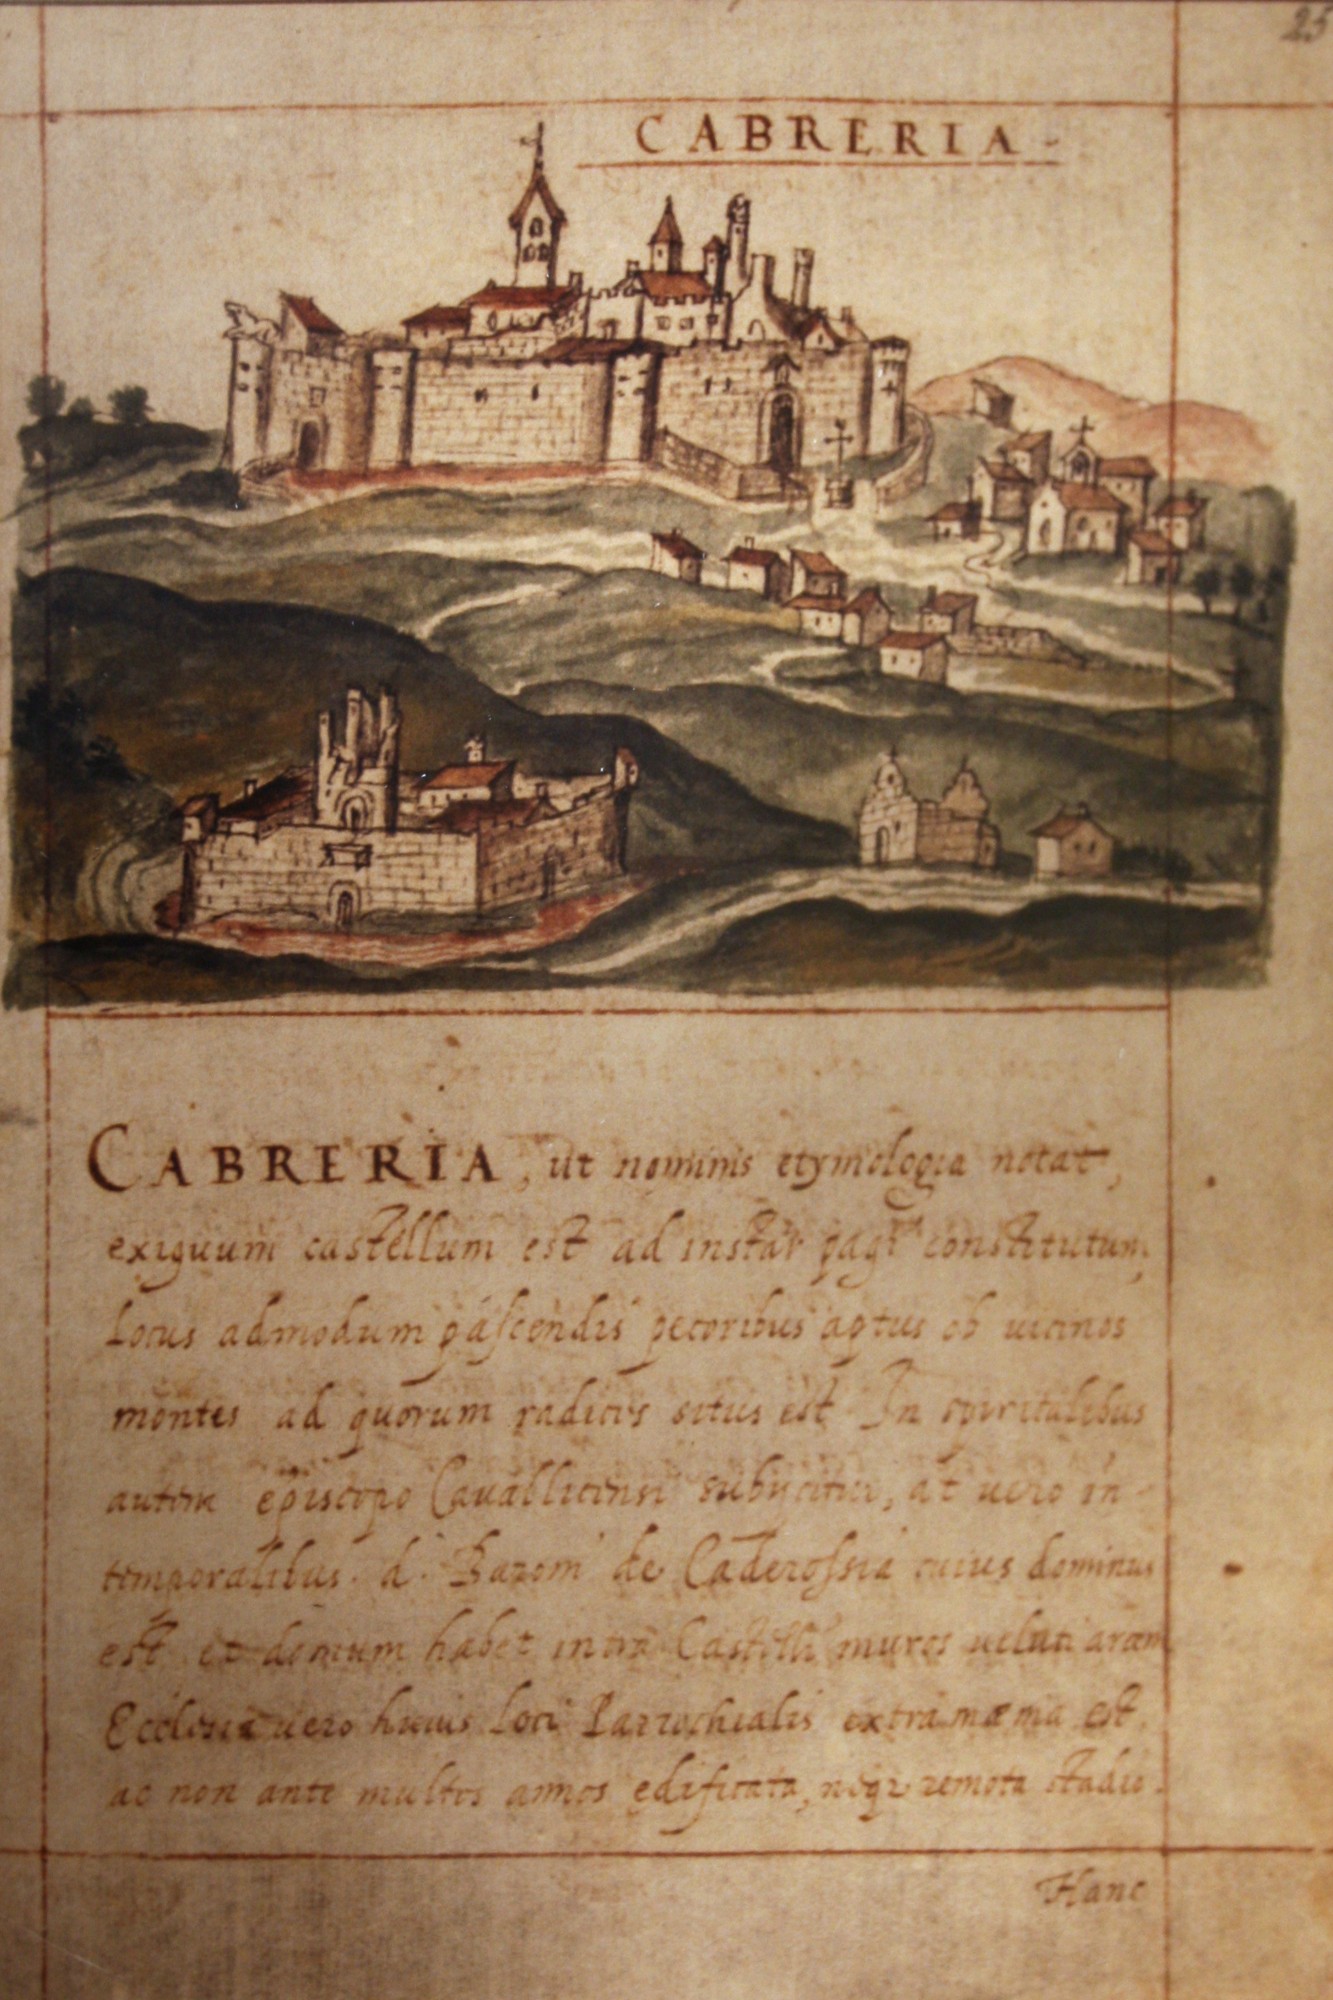 25
CABRERIA
CABRERIA, ut nominis etymologia notat,
exiguum castellum est ad instar pagi constitutum,
Locus admodum pascendis pecoribus aptus ob uicinos
montes ad quorum radices situs est In spiritalibus
autem episcopo Cauallicensi subijcitur, at uero in
temporalibus d. Baroni de Caderossia cuius dominus
est et domum habet intra Castelli muros ueluti arcem
Ecclesia uero huius loci Parrochialis extra mænia est,
ac non ante multos annos edificata, neqz remota stadio.
Hanc